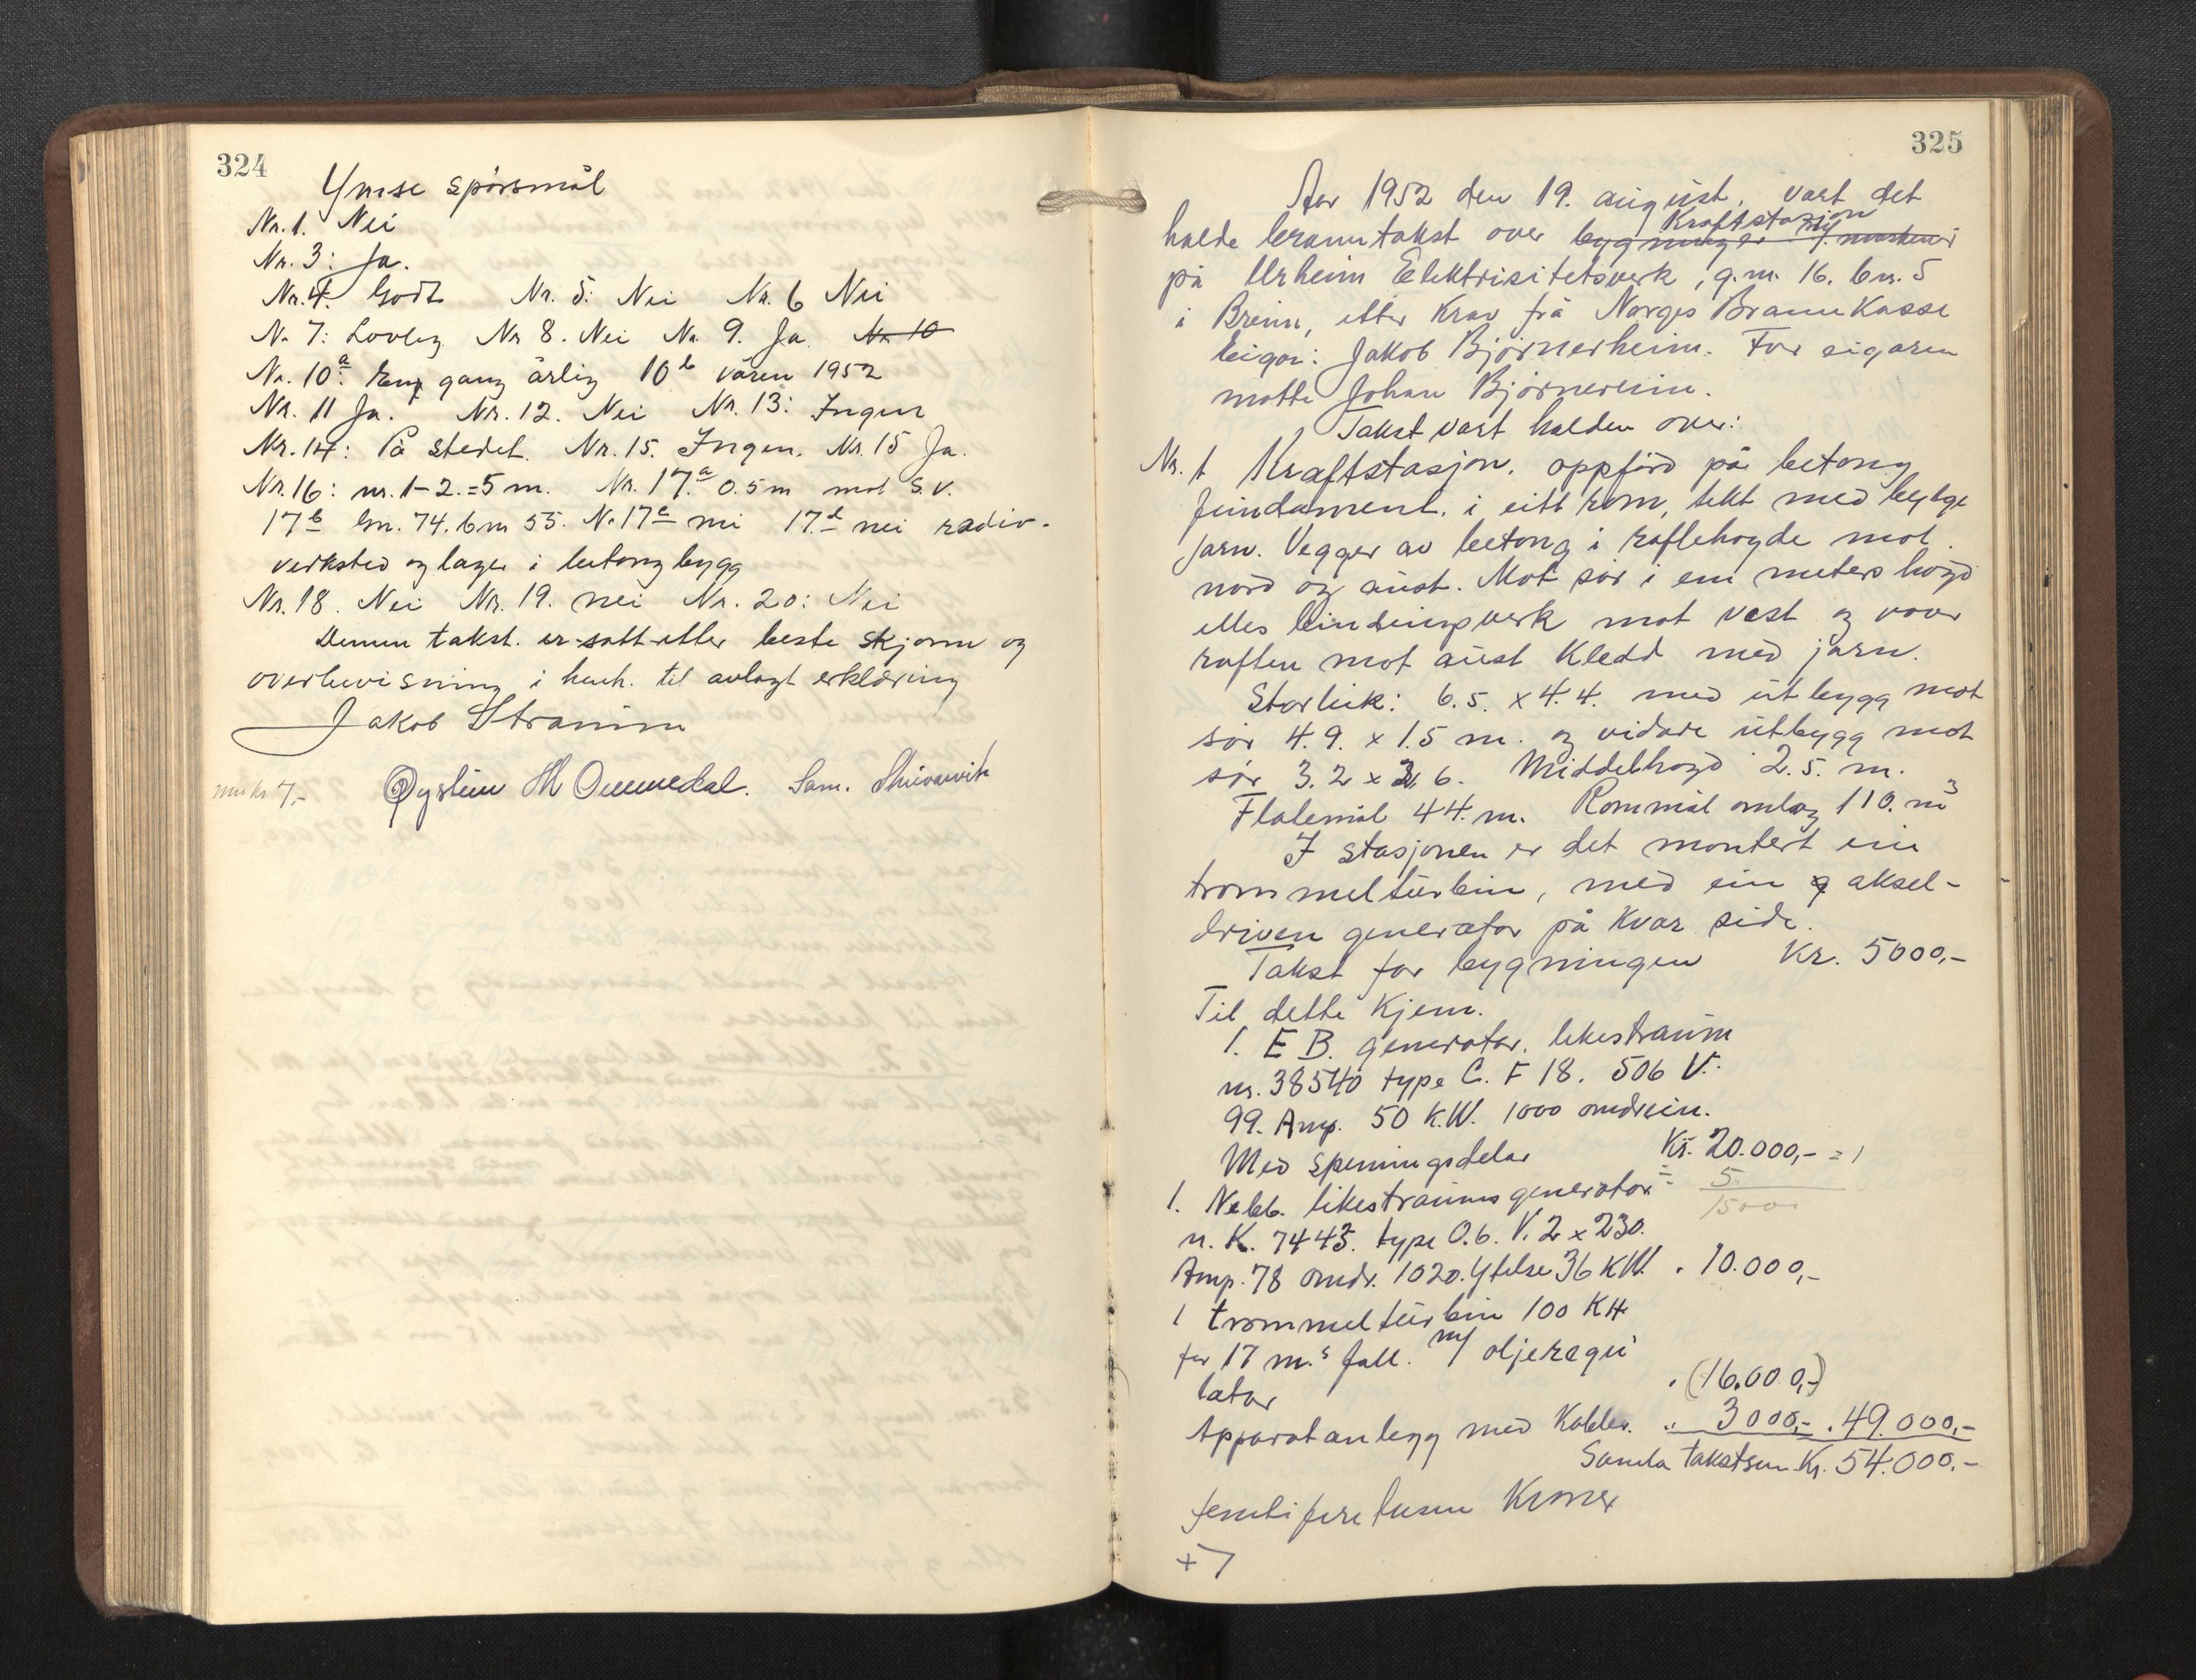 324
Ymse spörsmål
Nr. 1. Nei
Nr. 3: Ja.
Nr. 4. Godt Nr. 5: Nei Nr. 6 Nei
Nr. 7: Lovleg Nr 8. Nei Nr. 9. Ja. Nr 10
Nr. 10a: Eing gang årlig 10b våren 1952
Nr. 11 Ja. Nr. 12. Nei Nr. 13: Ingen
Nr. 14: På stedet. Nr. 15. Ingen. Nr. 15 Ja.
Nr. 16: nr. 1-2. = 5 m. Nr. 17.a 0.5 m mot S.V.
17b Gn. 74. bn 55. Nr 17c nei 17.d nei radio-
verksted og lager i betongbygg
Nr. 18. Nei Nr. 19. nei Nr. 20: Nei
Denne takst. er satt etter beste skjønn og
overbevisning i henh. til avlagt erklæring
Jakob Stramm
7,- Øystein H Sam.
325
Aar 1952 den 19. august, vart det
halde branntakst over bygninger Kraftstasjon
på Urheim Elektrisitetsverk, g.nr. 16. bnr. 5
i Breim, etter krav frå Norges Brannkasse
Eigar: Jakob Bjørnerheim. For eigaren
møtte Johan Bjørnereim.
Takst vart halden over:
Nr. 1 Kraftstasjon. oppförd på betong
fundament. i eitt rom, tekt med bylgje
jarn. Vegger av betong i raftehøgde mot
nord og aust. Mot sør i ein meters høgd
elles bindingsverk mot vest og over
raften mot aust Kledd med jarn.
Storleik: 6.5. x 4.4. med utbygg mot
sør 4.9. x 1.5 m. og vidare utbygg mot
sör 3.2 x 2.6. Middelhøgd 2.5. m.
Flatemål 44. m. Rommål omlag 110. m3
I stasjonen er det montert ein
trommelturbin, med ein aksel-
driven generator på kvar side.
Takst for bygningen Kr. 5000,-
Til dette kjem.
1. E B. generator. likestraum
nr. 38540 type C. F 18. 506 V.
99. Amp. 50 K.W. 1000 omdrein.
Med spenningsdelar Kr. 20.000,- = 1
5
15000
1. Nebb. likestraumsgenerator
n. K. 7443. type O.6. V. 2 x 230.
Amp. 78 omdr. 1020. Ytelse 36 KW. " 10.000,-
1 trommelturbin 100 KH
for 17 m.s fall. m/ oljeregu
lator " (16.000,-)
Apparatanlegg med Kabler. " 3000,- " 49.000,-
Samla takstsum Kr. 54.000.-
femtifiretusen Kroner
+7